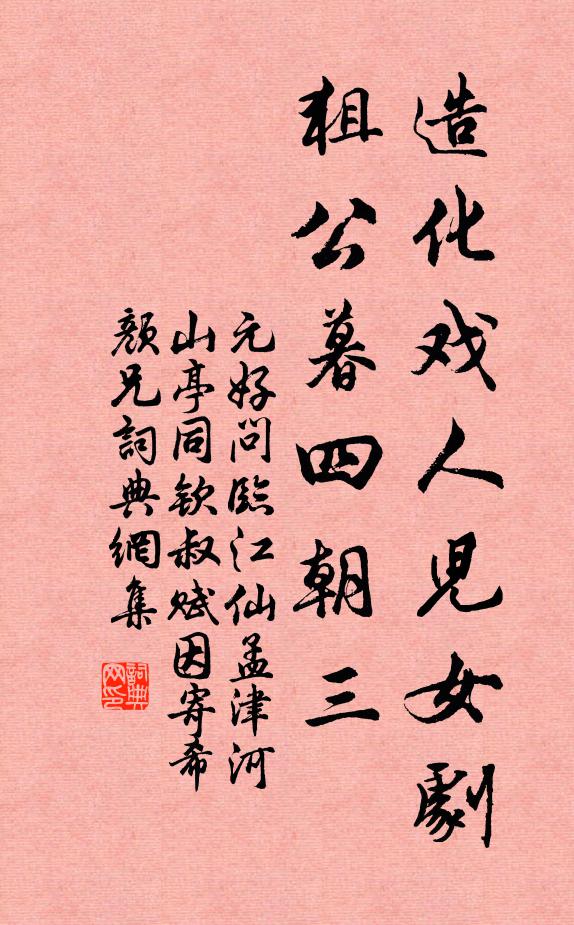 造化戏人児女劇
粗公暮四朝三
元好问臨江仙孟津河
山亭同钦叔赋因寄希
顏兄詞典網集
詞典
网印